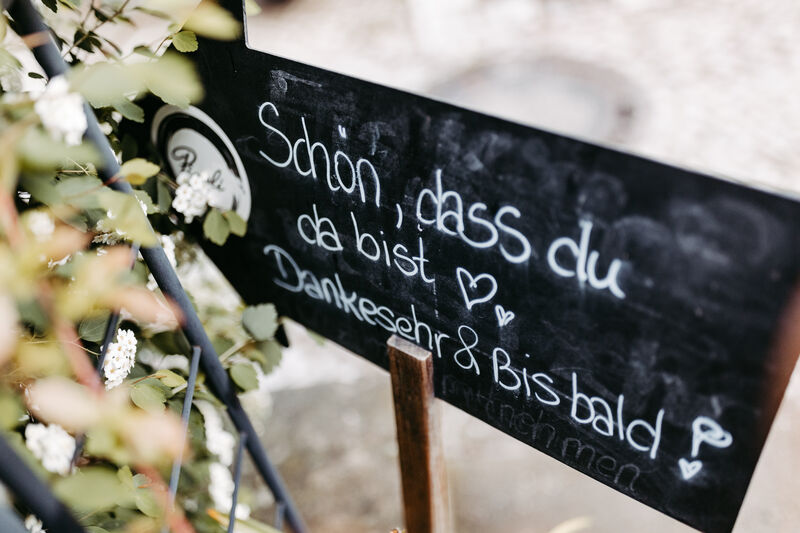 Schön, dass du
da bist ♡ ♡
Dankesehr & Bis bald !
mitnehmen